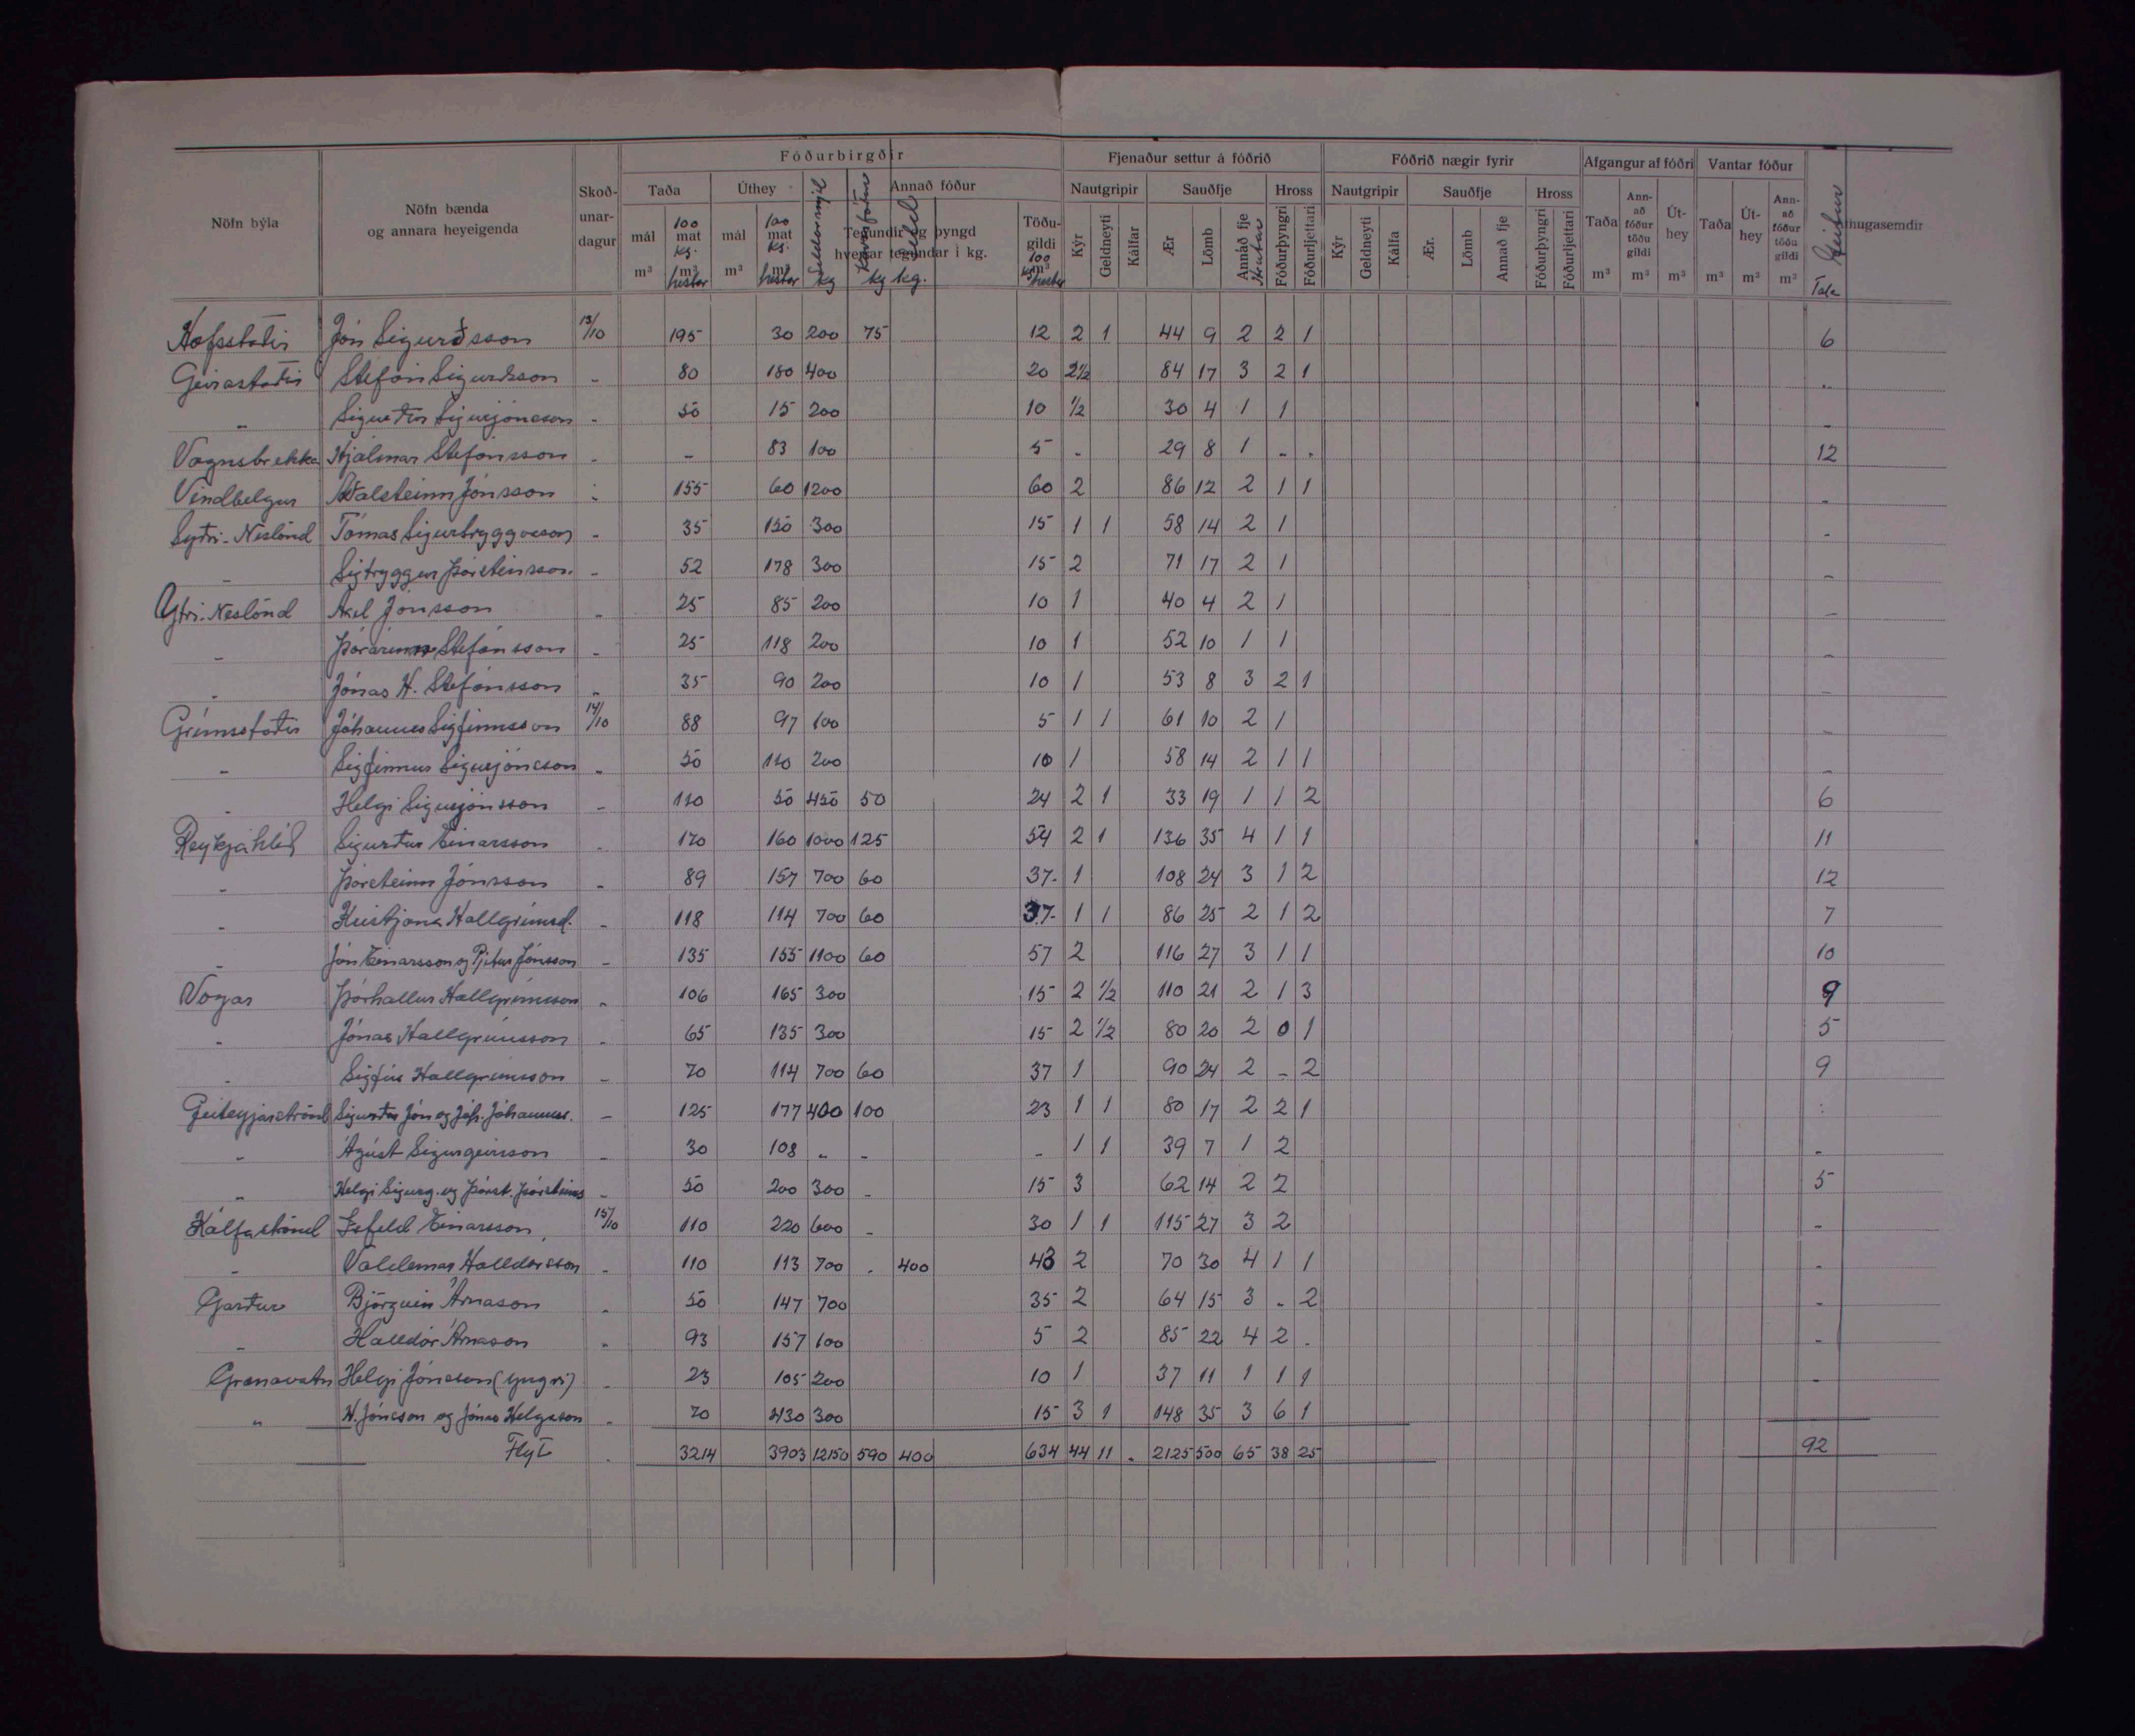 Fóðurbirgðir Fjenaður settur á fóðrið Fóðrið nægir fyrir Afgangur af fóðri Vantar fóður
Nöfn býla Nöfn bænda og annara heyeigenda Skoð-unar-dagur Taða Úthey Annað fóður Nautgripir Sauðfje Hross Nautgripir Sauðfje Hross Taða Ann-að fóður töðu gildi Út-hey Taða Út-hey Ann-að fóður töðu gildi Geitur hugasemdir
mál 100 mat kg. mál 100 mat kg. Síldarmjöl Tegundir og þyngd hverrar tegundar í kg. Töðu-gildi 100 Kýr Geldneyti Kálfar Ær Lömb Annað fje Hrútar Fóðurþyngri Fóðurljettari Kýr Geldneyti Kálfa Ær. Lömb Annað fje Fóðurþyngri Fóðurljettari
m³ m³ hestar m³ m³ hestar kg kg kg. m³ m³ m³ m³ m³ m³ m³ Tala
Hofsstaðir Jón Sigurðsson 13/10 195 30 200 75 12 2 1 44 9 2 2 1 6
Geirastaðir Stefán Sigurðsson - 80 180 400 20 2½ 84 17 3 2 1 -
" Sigurður Sigurjónsson - 50 15 200 10 ½ 30 4 1 1 -
Vagnsbrekka Hjálmar Stefánsson - - 83 100 5 - 29 8 1 - - 12
Vindbelgur Aðalsteinn Jónsson - 155 60 1200 60 2 86 12 2 1 1 -
Syðri-Neslönd Tómas Sigurtryggvason - 35 150 300 15 1 1 58 14 2 1 -
" Sigtryggur Þorsteinsson. - 52 178 300 15 2 71 17 2 1 -
Ytri-Neslönd Axel Jónsson - 25 85 200 10 1 40 4 2 1 -
" Þórarinn Stefánsson - 25 118 200 10 1 52 10 1 1 -
" Jónas H. Stefánsson " 35 90 200 10 1 53 8 3 2 1 -
Grímsstaðir Jóhannes Sigfinnsson 14/10 88 97 100 5 1 1 61 10 2 1 -
" Sigfinnur Sigurjónsson - 50 110 200 10 1 58 14 2 1 1 -
" Helgi Sigurjónsson - 110 50 450 50 24 2 1 33 19 1 1 2 6
Reykjahlíð Sigurður Einarsson - 120 160 1000 125 54 2 1 136 35 4 1 1 11
" Þorsteinn Jónsson - 89 157 700 60 37- 1 108 24 3 1 2 12
" Kristjana Hallgrímsd. - 118 114 700 60 37- 1 1 86 25 2 1 2 7
" Jón Einarsson og Pjetur Jónsson - 135 155 1100 60 57 2 116 27 3 1 1 10
Vogar Þórhallur Hallgrímsson - 106 165 300 15 2 ½ 110 21 2 1 3 9
" Jónas Hallgrímsson - 65 135 300 15 2 ½ 80 20 2 0 1 5
" Sigfús Hallgrímsson - 70 114 700 60 37 1 90 24 2 - 2 9
Geiteyjarströnd Sigurður Jón og Jóh. Jóhanness. - 125 177 400 100 23 1 1 80 17 2 2 1
" Ágúst Sigurgeirsson - 30 108 - - - 1 1 39 7 1 2 -
" Helgi Sigurg. og Þorst. Þorsteins - 50 200 300 - 15 3 62 14 2 2 5
Kálfaströnd Ísfeld Einarsson 15/10 110 220 600 - 30 1 1 115 27 3 2 -
" Valdemar Halldórsson - 110 113 700 - 400 43 2 70 30 4 1 1 -
Garður Björgvin Árnason - 50 147 700 35 2 64 15 3 - 2 -
" Halldór Árnason - 93 157 100 5 2 85 22 4 2 - -
Grænavatn Helgi Jónsson (yngri) - 23 105 200 10 1 37 11 1 1 1 -
" H. Jónsson og Jónas Helgason - 70 430 300 15 3 1 148 35 3 6 1
Flyt 3214 3903 12150 590 400 634 44 11 - 2125 500 65 38 25 92